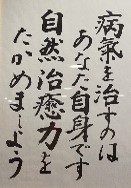 病氣を治すのは
あなた自身です
自然治癒力を
たかめましょう